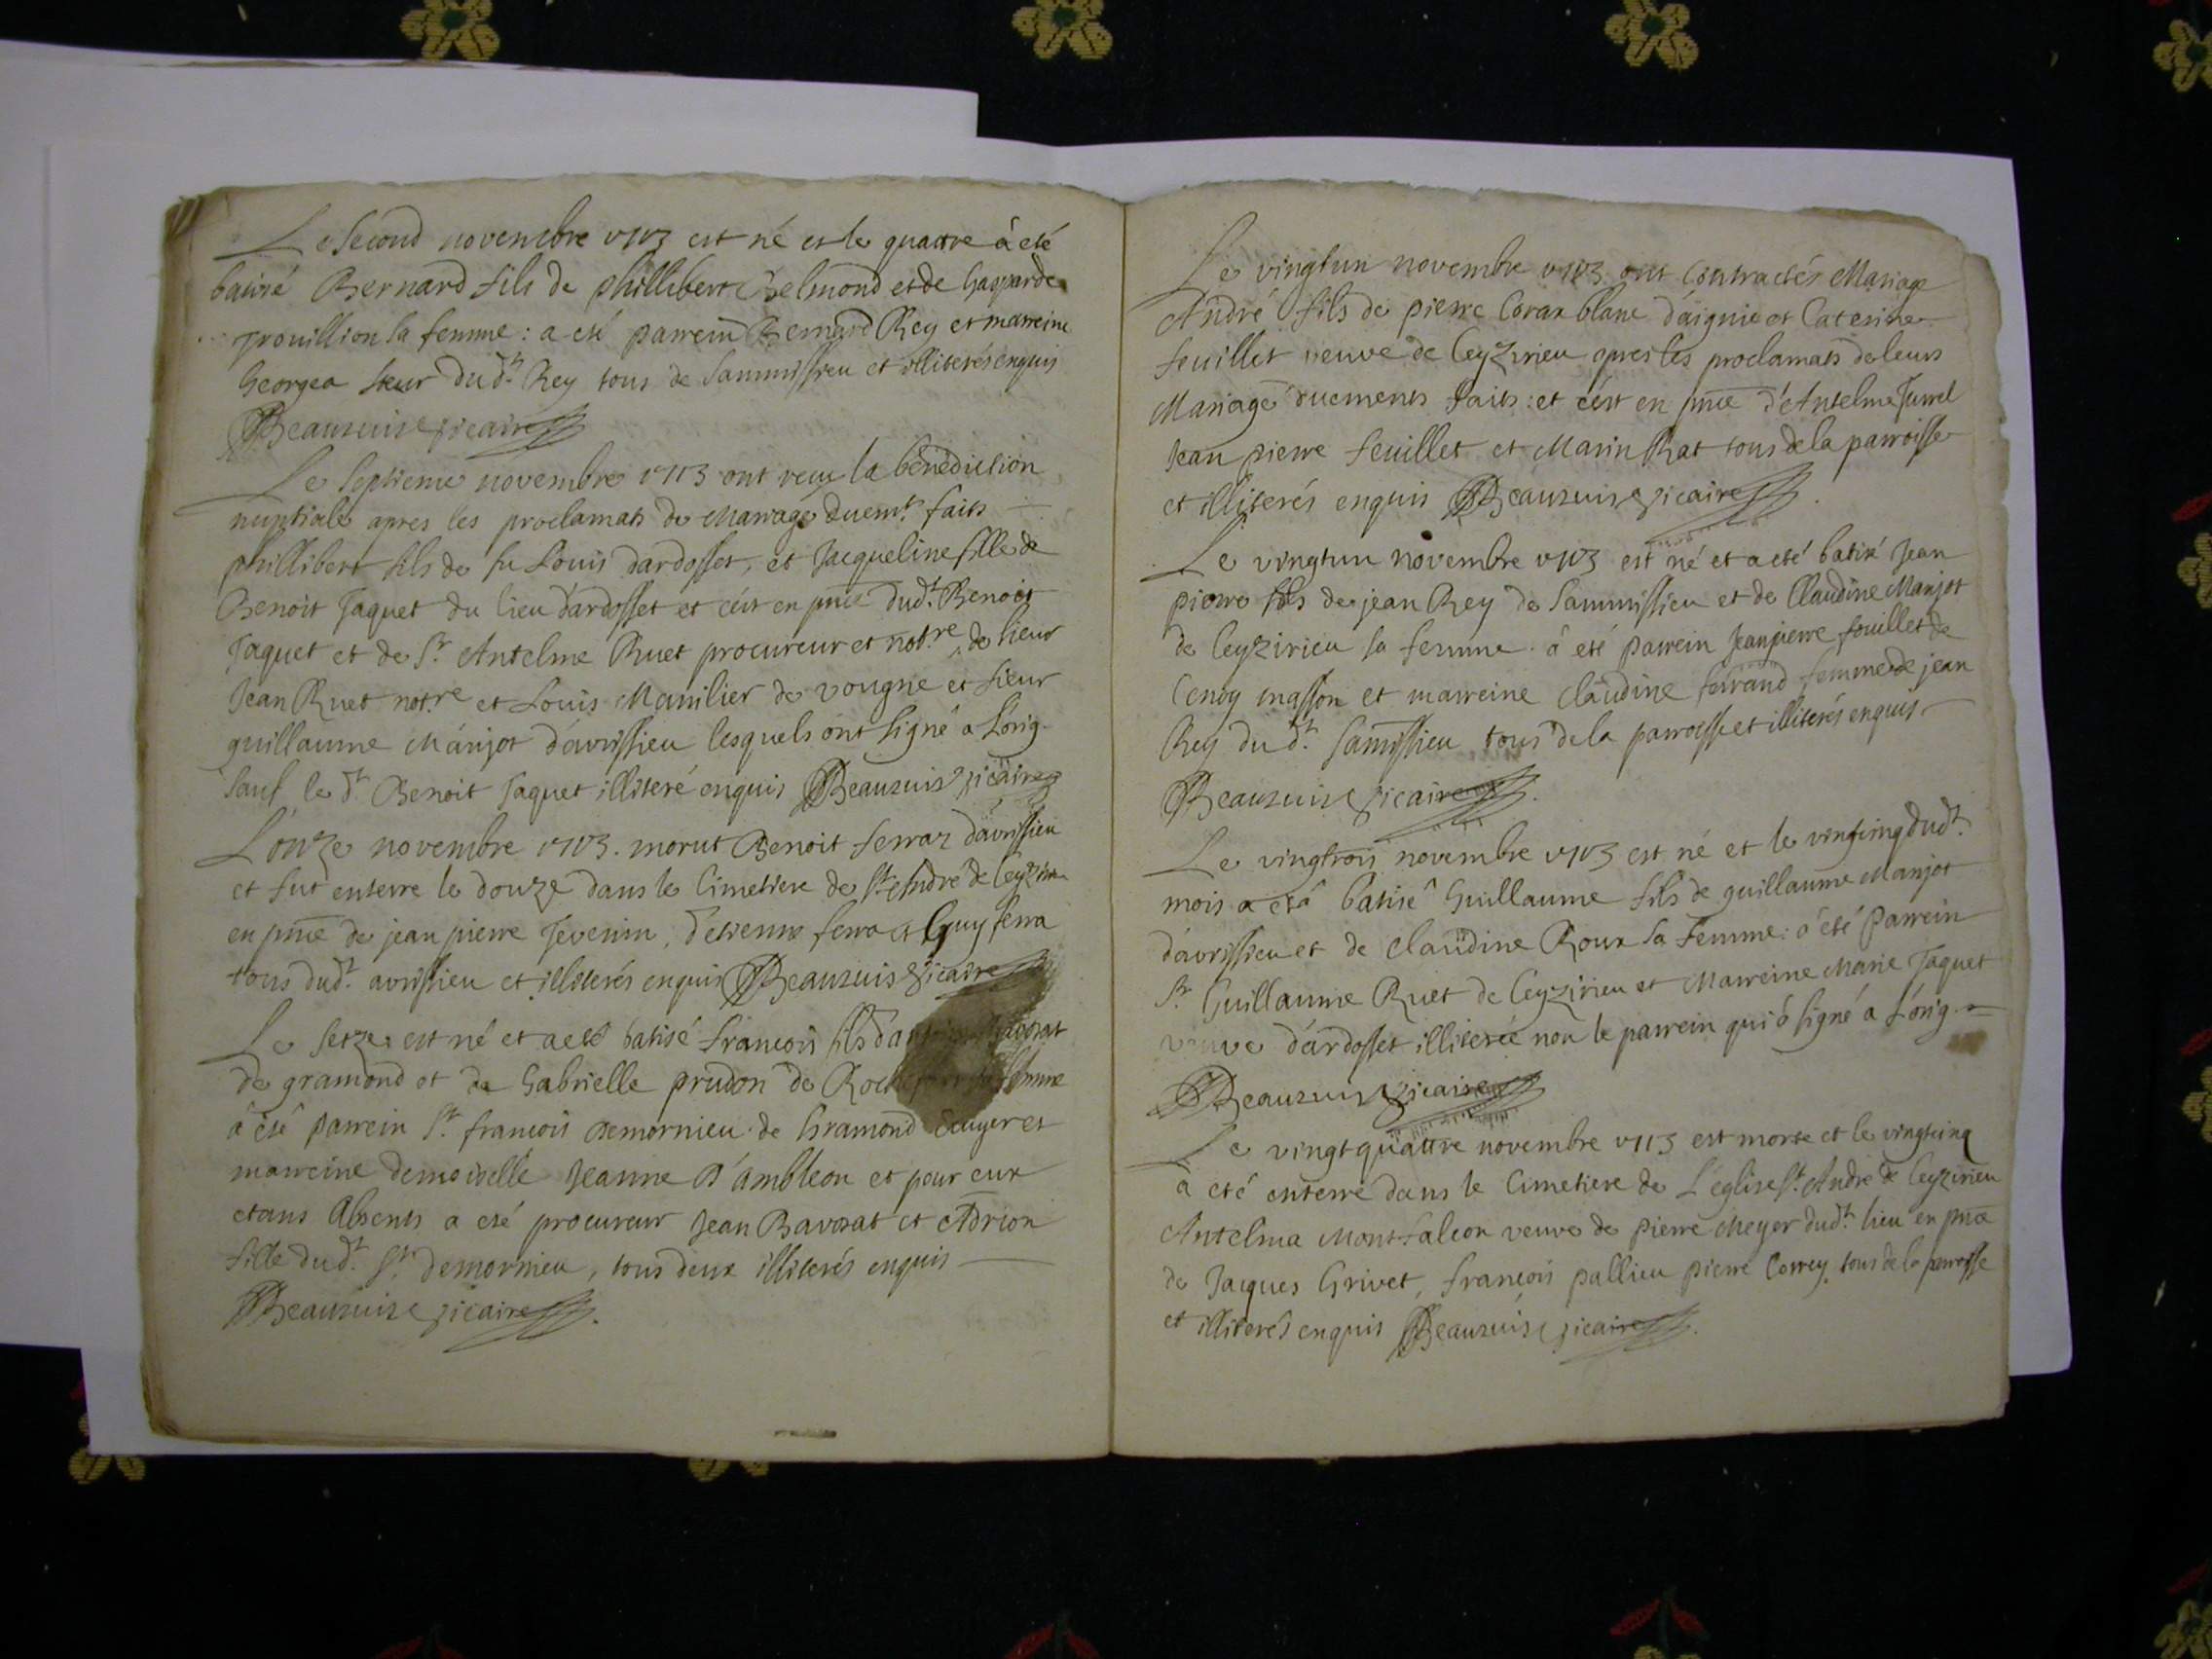 Le second novembre 1703 est né et le quattre à eté
batisé Bernard fils de phillibert Belmond et de Gasparde
Trouillion sa femme : a eté parrein Bernard Rey et marreine
Georgea sœur dud.t Rey tous de Sammissieu et illiterés enquis
Beauzuire vicaire
Le septieme novembre 1703 ont receu la bénédiction
nuptiale apres les proclamats de Mariage duem.t faits
phillibert fils de fu Louis dardosset, et Jacqueline fille de
Benoit Jaquet du lieu d'ardosset et c'est en pñce dud.t Benoit
Jaquet et de S.r Antelme Ruet procureur et not.re, de sieur
Jean Ruet not.re et Louis Manilier de vougne et sieur
guillaume Manjot d'avrissieu lesquels ont signé a L'orig.
sauf le d.t Benoit Jaquet illiteré enquis Beauzuire vicaire
L'onze novembre 1703. morut Benoit ferraz d'avrissieu
et fut enterre le douze dans le Cimetiere de S.t André de Ceyzirieu
en pñce de jean pierre Tevenin, d'etienne ferra et Guy ferra
tous dud.t avrissieu et illiterés enquis Beauzuire vicaire
Le seize est né et a eté batisé françois fils d' Bavozat
de gramond et de Gabrielle prudon de femme
â été parrein S.r françois Demornieu de Gramond Ecuyer et
marreine demoiselle Jeanne D'ambleon et pour eux
etans Absents a eté procureur Jean Bavozat et Adrion
fille dud.t S.r demornieu, tous deux illiterés enquis
Beauzuire vicaire
Le vingtun novembre 1703 ont contractés Mariage
André fils de pierre Coraz blanc d'aignie et Caterine
feuillet veuve de Ceyzirieu apres les proclamats de leurs
Mariage duements faits : et c'est en pñce d'Antelme Juvrel
Jean pierre feuillet et Marin Rat tous de la parroisse
et illiterés enquis Beauzuire vicaire
Le vingtun novembre 1703 est né et a eté batisé Jean
pierre fils de jean Rey de Sammissieu et de Claudine Manjot
de Ceyzirieu sa femme. a eté parrein Jeanpierre fouillet de
Cenoy masson et marreine claudine ferrand femme de jean
Rey du d.t Samissieu tous de la parroisse et illiterés enquis
Beauzuire vicaire
Le vingtrois novembre 1703 est né et le vingtcinq dud.t
mois a eté batisé Guillaume fils de guillaume Manjot
d'avrissieu et de claudine Roux sa femme : a été parrein
S.r Guillaume Ruet de Ceyzirieu et Marreine Marie Jaquet
veuve d'ardosset illiterée non le parrein qui a signé a L'orig.
Beauzuire vicaire
Le vingt quattre novembre 1703 est morte et le vingtcinq
a eté enterré dans le Cimetiere de L'eglise S.t André de Ceyzirieu
Antelma Montfalcon veuve de pierre Meyer dud.t lieu en pñce
de Jacques Grivet, françois pallieu pierre Correy tous de la parroisse
et illiterés enquis Beauzuire vicaire